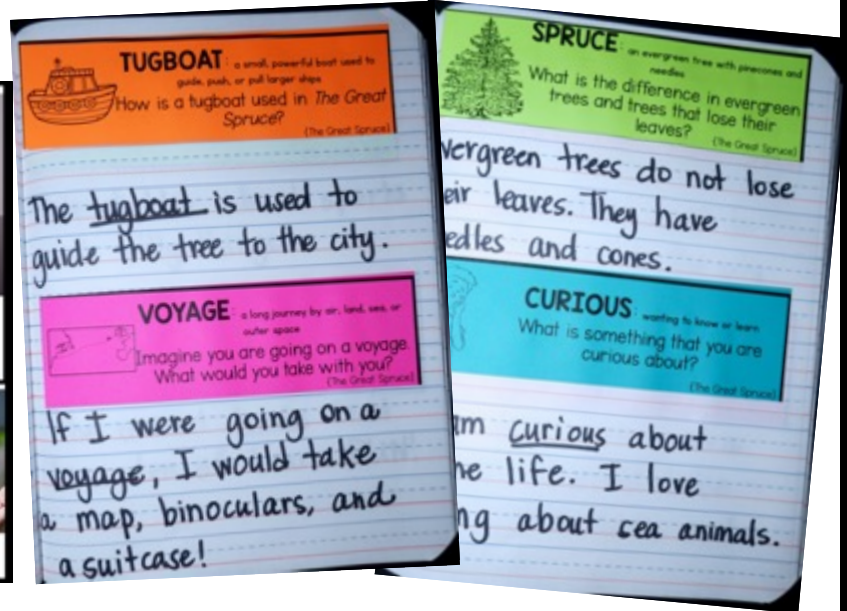 TUGBOAT: a small, powerful boat used to
guide, push, or pull larger ships
How is a tugboat used in The Great
Spruce?
(The Great Spruce)
The tugboat is used to
guide the tree to the city.
VOYAGE: a long journey by air, land, sea, or
outer space
Imagine you are going on a voyage.
What would you take with you?
(The Great Spruce)
If I were going on a
voyage, I would take
a map, binoculars, and
a suitcase!
SPRUCE: an evergreen tree with pinecones and
needles
What is the difference in evergreen
trees and trees that lose their
leaves?
(The Great Spruce)
vergreen trees do not lose
eir leaves. They have
edles and cones.
CURIOUS: wanting to know or learn
What is something that you are
curious about?
(The Great Spruce)
am curious about
ne life. I love
ng about sea animals.